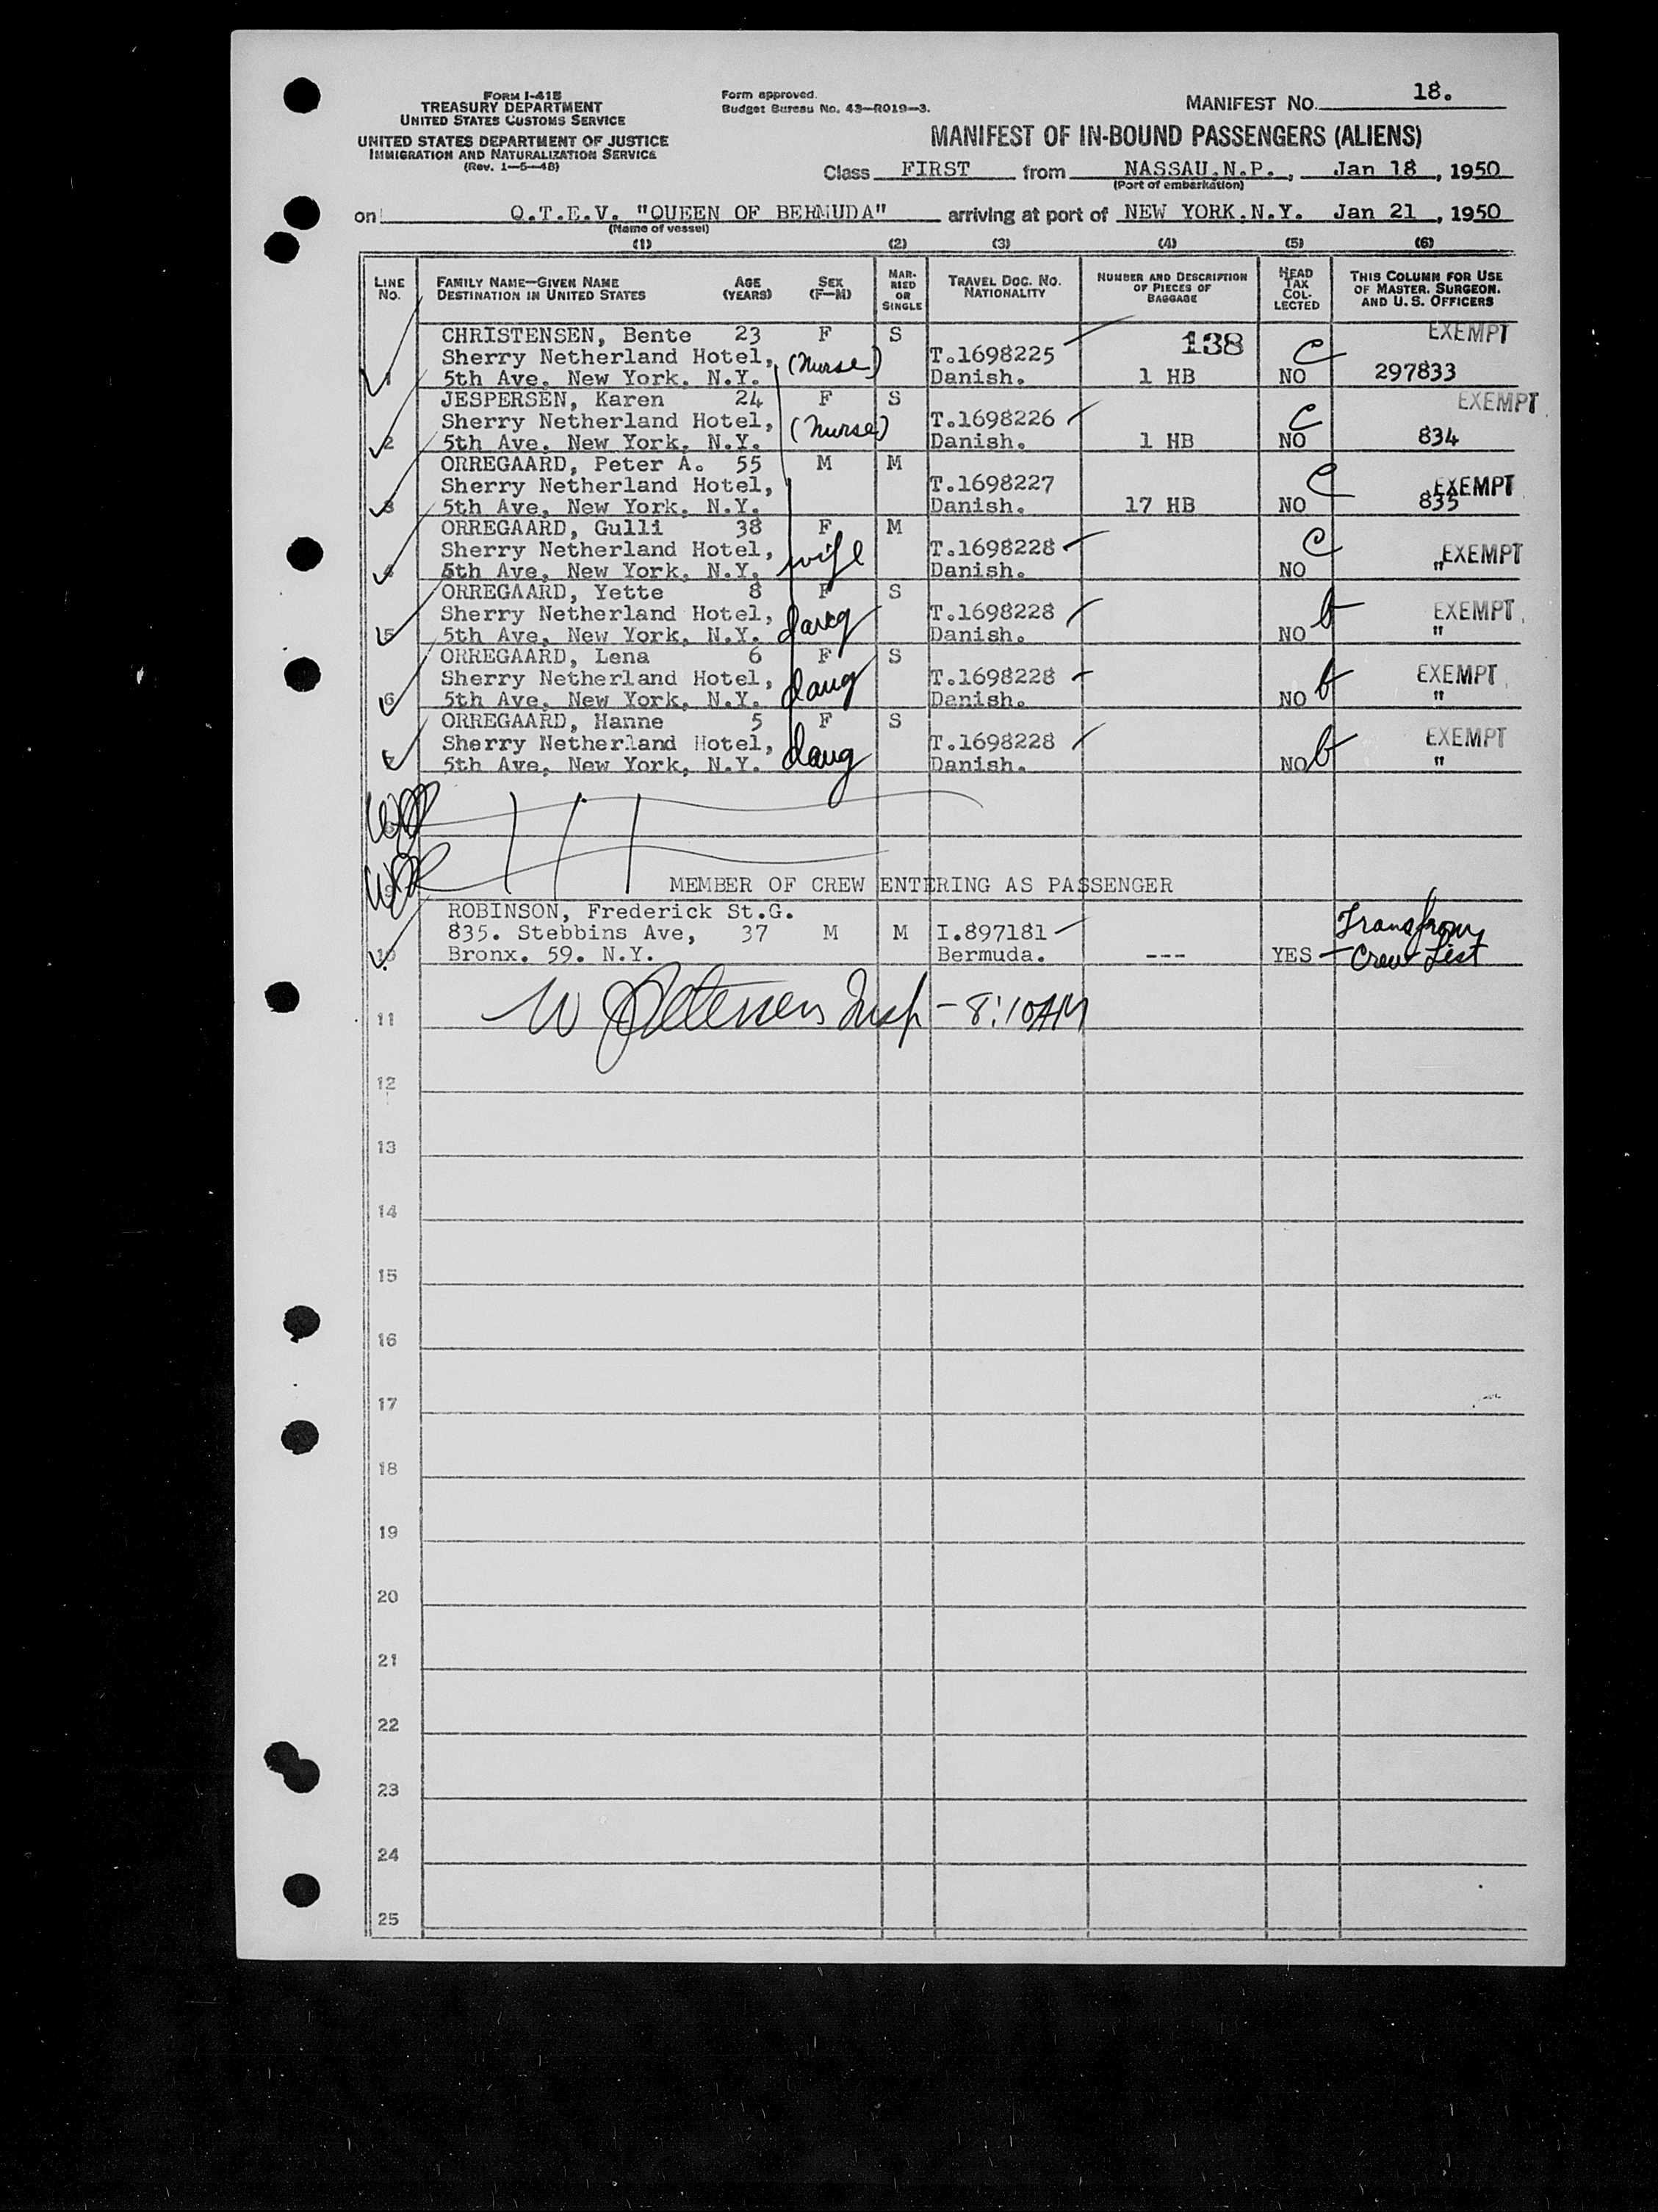 FORM I-418
TREASURY DEPARTMENT
UNITED STATES CUSTOMS SERVICE
UNITED STATES DEPARTMENT OF JUSTICE
IMMIGRATION AND NATURALIZATION SERVICE
(Rev. 1-5-48)
Form approved.
Budget Bureau No. 43-R019-3.
MANIFEST NO. 18.
MANIFEST OF IN-BOUND PASSENGERS (ALIENS)
Class FIRST from NASSAU.N.P., Jan 18, 1950
(Port of embarkation)
on Q.T.E.V. "QUEEN OF BERMUDA" arriving at port of NEW YORK.N.Y. Jan 21, 1950
(Name of vessel)
(1) (2) (3) (4) (5) (6)
LINE NO. FAMILY NAME—GIVEN NAME DESTINATION IN UNITED STATES AGE (YEARS) SEX (F—M) MARRIED OR SINGLE TRAVEL DOC. NO. NATIONALITY NUMBER AND DESCRIPTION OF PIECES OF BAGGAGE HEAD TAX COLLECTED THIS COLUMN FOR USE OF MASTER, SURGEON, AND U.S. OFFICERS
CHRISTENSEN, Bente 23 F S 138 EXEMPT
Sherry Netherland Hotel, (Nurse) T.1698225 C
1 5th Ave. New York. N.Y. Danish. 1 HB NO 297833
JESPERSEN, Karen 24 F S EXEMPT
Sherry Netherland Hotel, (Nurse) T.1698226 C
2 5th Ave. New York. N.Y. Danish. 1 HB NO 834
ORREGAARD, Peter A. 55 M M
Sherry Netherland Hotel, T.1698227 C EXEMPT
3 5th Ave, New York. N.Y. Danish. 17 HB NO 835
ORREGAARD, Gulli 38 F M
Sherry Netherland Hotel, wife T.1698228 C EXEMPT
4 5th Ave, New York, N.Y. Danish. NO "
ORREGAARD, Yette 8 F S
Sherry Netherland Hotel, daug T.1698228 b EXEMPT
5 5th Ave, New York, N.Y. Danish. NO "
ORREGAARD, Lena 6 F S
Sherry Netherland Hotel, daug T.1698228 b EXEMPT
6 5th Ave, New York, N.Y. Danish. NO "
ORREGAARD, Hanne 5 F S
Sherry Netherland Hotel, daug T.1698228 b EXEMPT
7 5th Ave, New York, N.Y. Danish. NO "
MEMBER OF CREW ENTERING AS PASSENGER
ROBINSON, Frederick St.G.
835. Stebbins Ave, 37 M M I.897181 Trans from
10 Bronx. 59. N.Y. Bermuda. --- YES Crew List
11 W Petersen Insp - 8:10AM
12
13
14
15
16
17
18
19
20
21
22
23
24
25